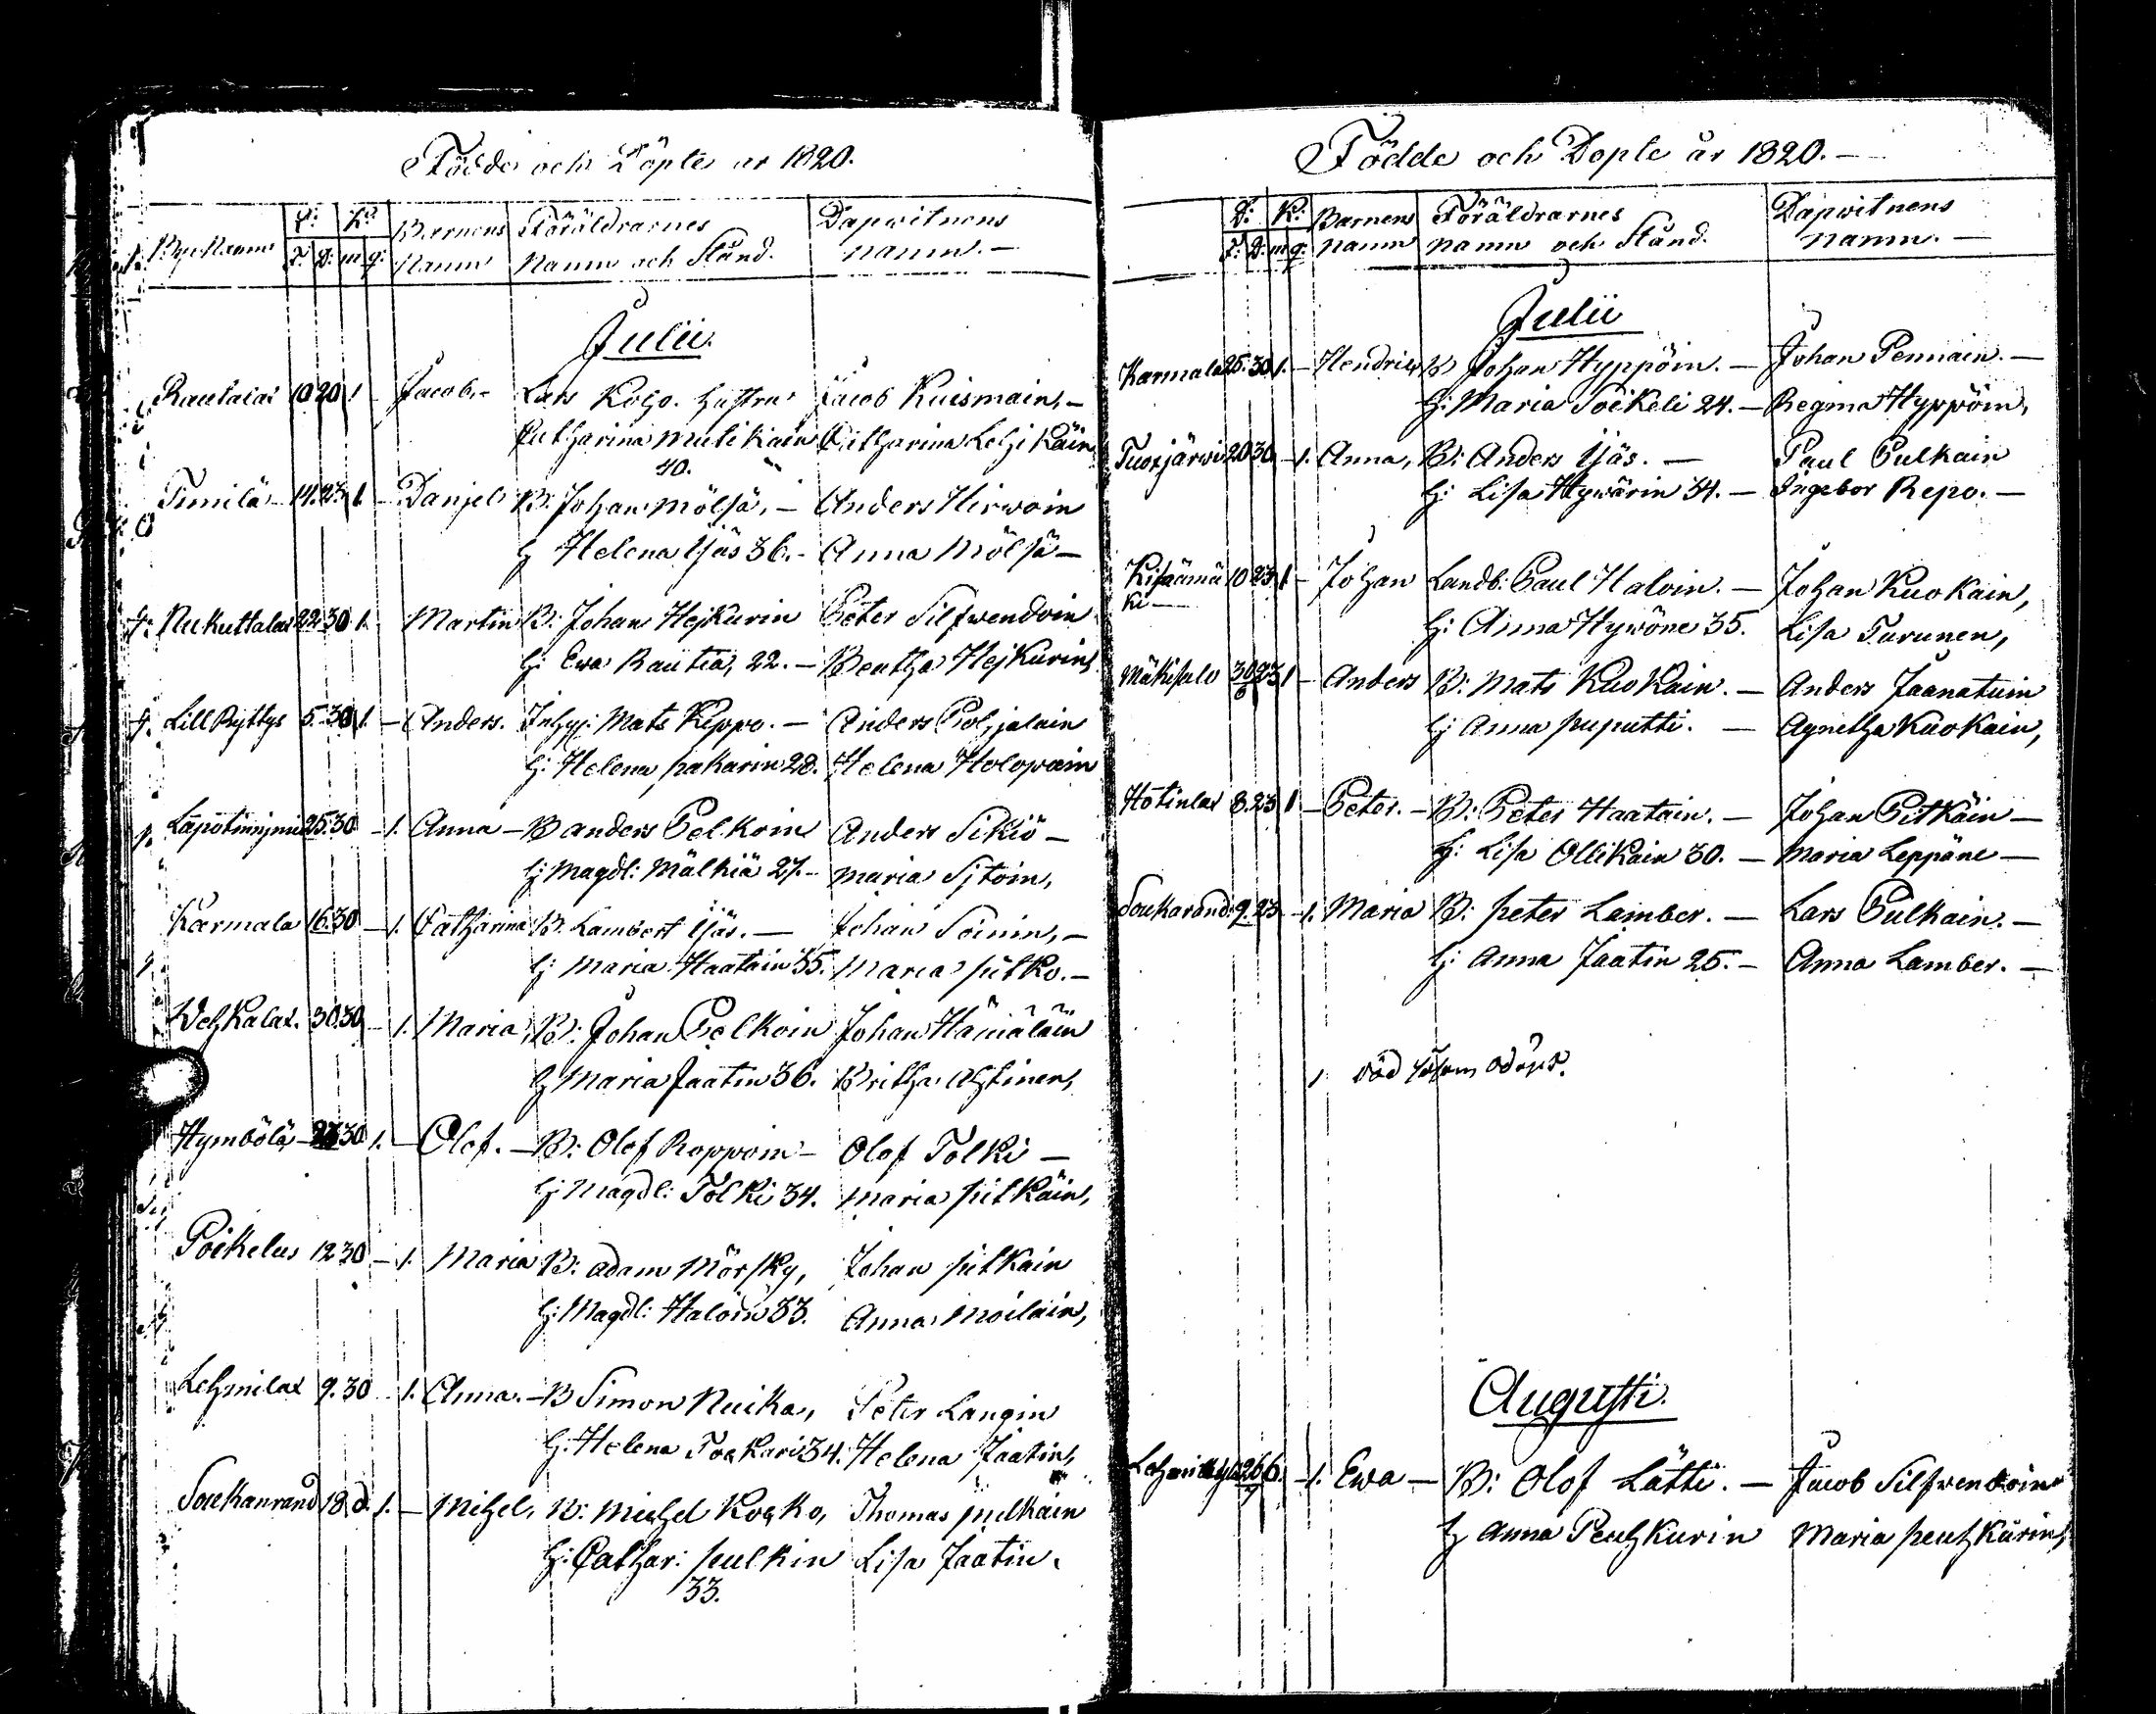 Födde och Döpte år 1820.
By Namn F: D: m q: Barnens Namn Föräldrarnes Namn och Stånd. Dopwitnens namn. —
Julii.
Rautalax 10 20 1 - Jacob, - Lars Kojo. hustru Jacob Kuismain, -
Catharina Mutikain Catharina Lehikäin
40.
Timilä - 14. 23 1. - Danjel B: Johan Mölsä, - Anders Hirwoin
h Helena Ijäs 36. - Anna Mölsä -
Nukuttalax 22 30 1. Martin B: Johan Hejkurin Peter Silfwendoin
h: Ewa Rautia, 22. - Beatha Hejkurin,
Lill Ryttys 5. 30 1. - Anders. Inhys: Mats Kippo. - Anders Pohjalain
h: Helena pakarin 28. Helena Holopain
25. 30 - 1. Anna - B anders Pelkoin Anders Sikiö -
h: Magdl: Mälkiä 27. - maria Sjtoin,
Karmala 16. 30 - 1. Catharina B. Lambert Ijäs. - Johan Soinin, -
h: Maria Haatain 35. Maria pitko. -
Wehkalax. 30. 30 - 1. Maria, B: Johan Pelkoin Johan Hämäläin
h Maria Jaatin 36. Britha Ahtinen,
Hymbölä - 23 30 1. - Olof. - B: Olof Roppoin - Olof Tolki -
h: Magdl: Tolki 34. maria pitkäin,
Poikelus 12 30 - 1. Maria B: adam Mörsky, Johan pitkäin
h: Magdl: Haloin 33. Anna Moilain,
Lehmilax 9. 30 - 1. Anna. - B Simon Nuika, Peter Langin
h: Helena Tockari 34. Helena Jaatin,
Soukanrand 18. d. 1. - Mihel, B: Michel Kocko, Thomas pulkain
h: Cathar: pulkin Lisa Jaatin.
33.
Födde och Döpte år 1820. —
D: K: Barnens Föräldrarnes Dopwitnens
F: D: m q: namn namn och Stånd. namn. —
Julii
Karmala 25. 30 1. - Hendrich B Johan Hyppöin. - Johan Pennain. -
h: Maria Poikeli 24. - Regina Hyppöin,
Tuoxjärwi 20 30 - 1. Anna, B: Anders Ijäs. - Paul Pulkain
h: Lisa Hywärin 34. - Ingebor Repo. -
Kisaämä 10 23 1 - Johan Landb: Paul Haloin. - Johan Kuokain,
ki —
h: Anna Hywöne 35. Lisa Turunen,
Mäkisalo 30/6 23 1 - Anders B: Mats Kuokain. - Anders Jaanatuin
h: Anna puputti. - Agnetha Kuokain,
Hotinlax 8. 23 1 - Peter. - B: Peter Haatain. - Johan Pitkäin -
h: Lisa Ollikain 30. - Maria Leppäne -
Soukarand: 9. 23 - 1. Maria B: peter Lamber. - Lars Pulkain. -
h: Anna Jaatin 25. - Anna Lamber. -
1
Augusti.
26/7 6. - 1. Ewa - B: Olof Lätti. - Jacob Silfwendoin
h Anna Peuhkurin Maria peuhkurin,